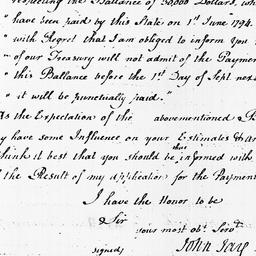 respecting the Ballance of 30,000 Dollars, wh
" have been paid by this State on 1st June 1794.
" with Regret that I am obliged to inform you
" of our Treasury will not admit of the Paymen
" this Ballance before the 1st Day of Sept. next
" it will be punctually paid."
As the Expectation of the abovementioned
y have some Influence on your Estimates & ar
think it best that you should be thus informed with
the Result of my application for the Paymen
I have the Honor to be
& Sir
your most obt. Servt.
signed John Jay